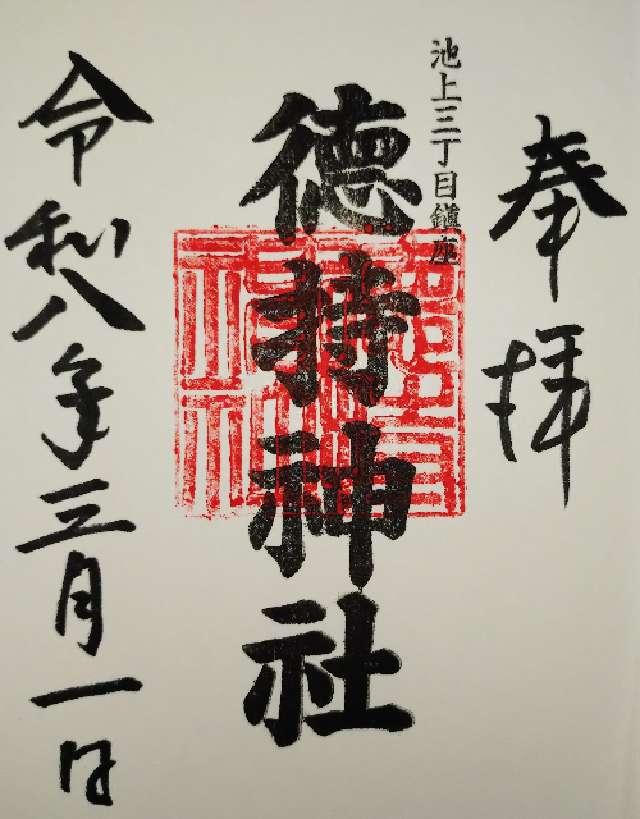 奉拝
池上三丁目鎮座
徳持神社
令和八年三月一日